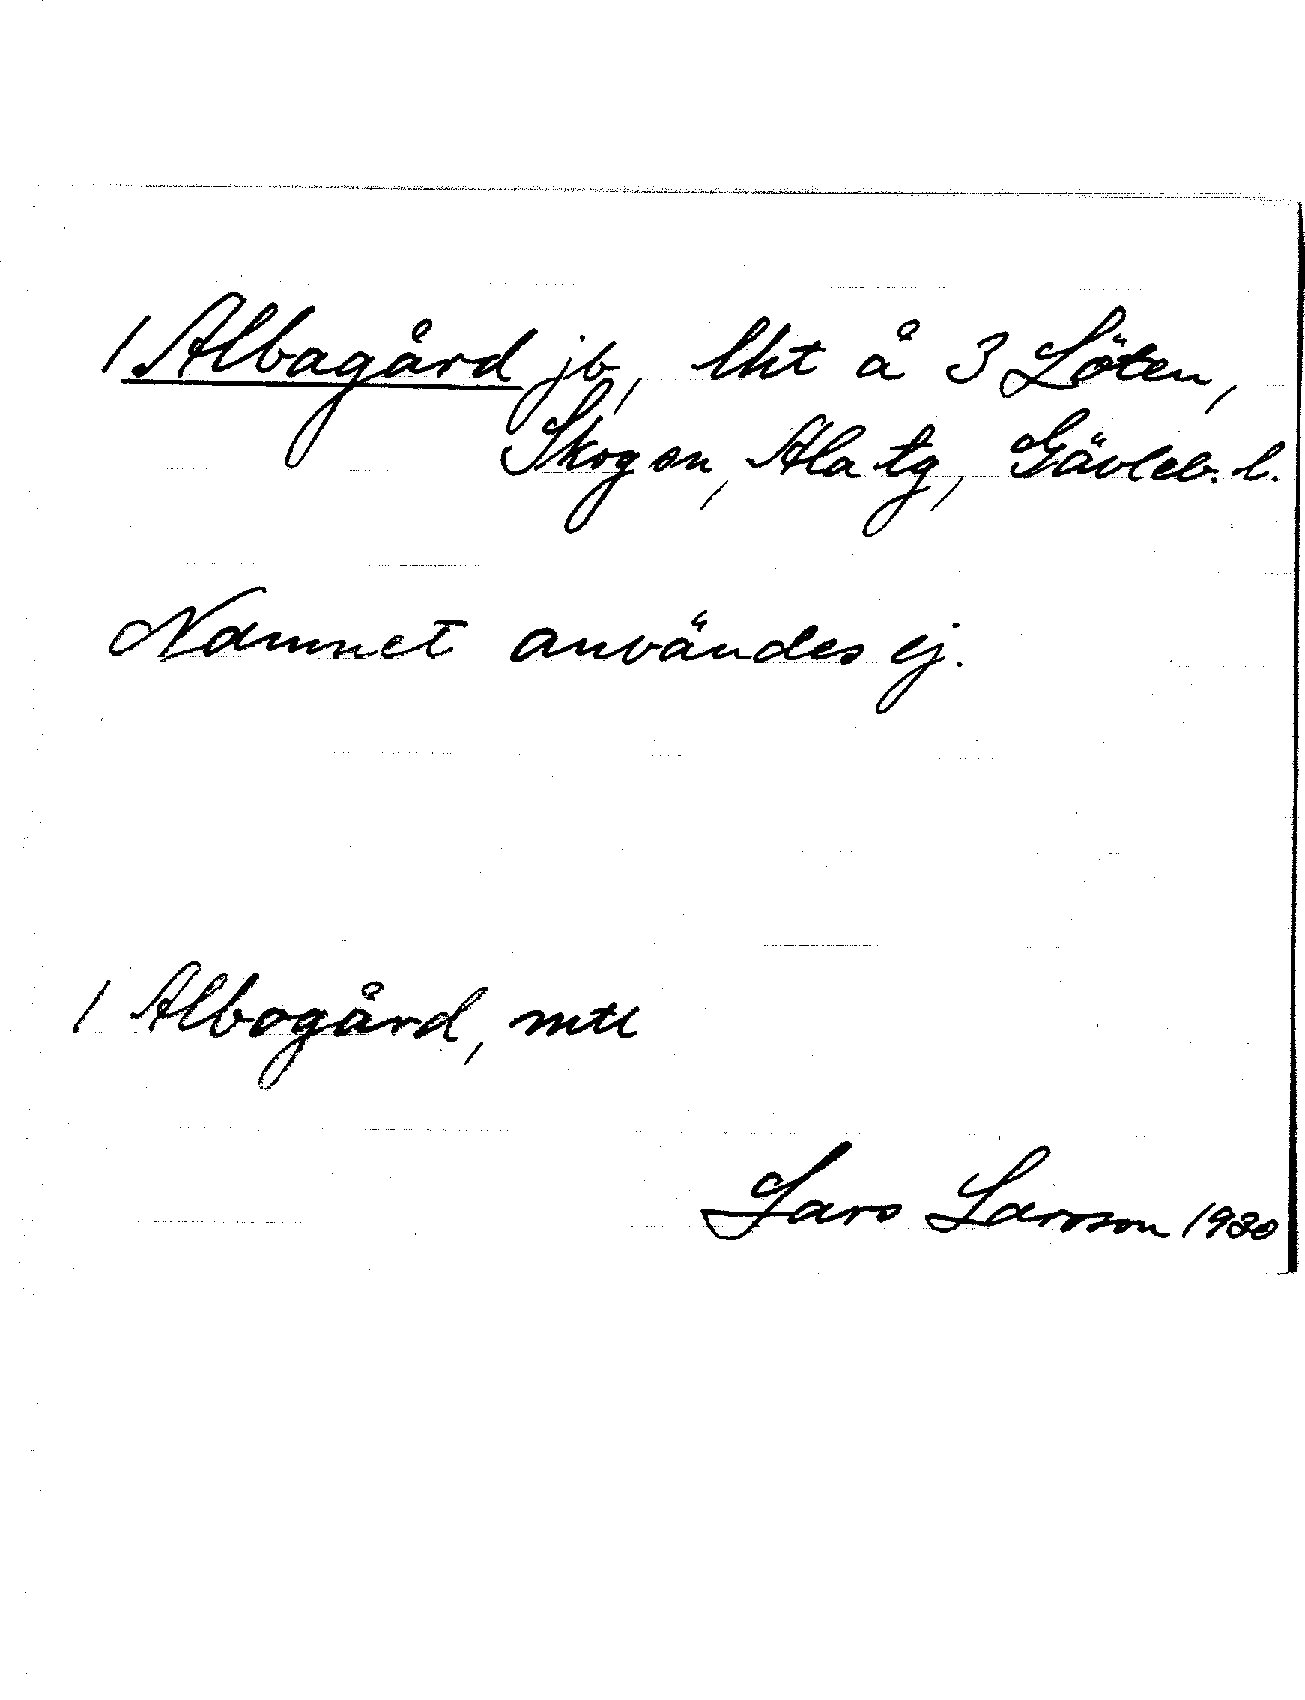 1 Albagård jb, lht å 3 Löten,
Skog sn, Ala tg, Gävleb. l.
Namnet användes ej.
1 Albogård, mtl
Lars Larsson 1930